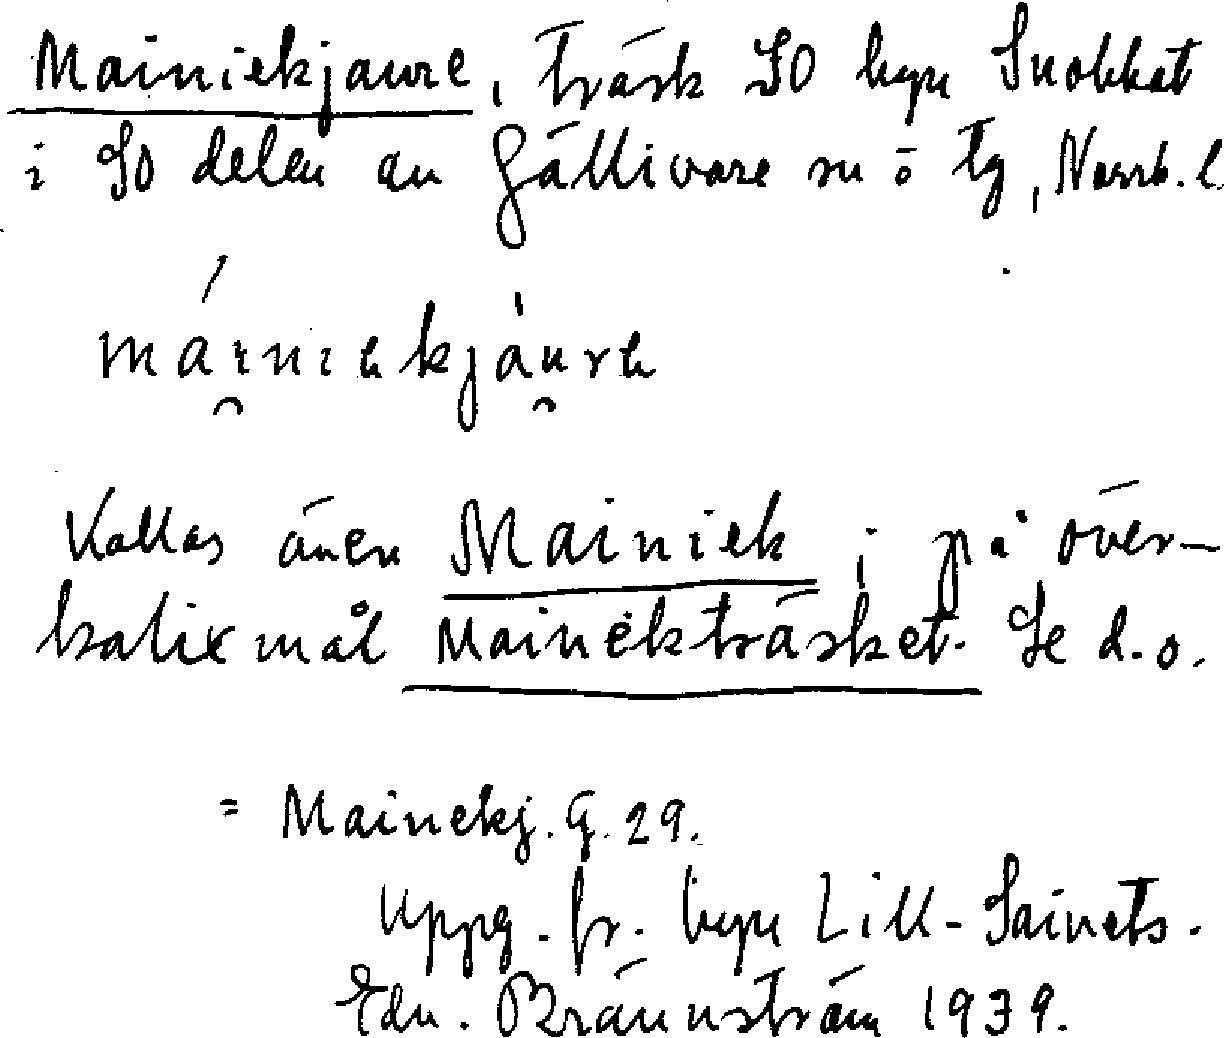 Mainiekjaure, träsk SO byn Suobbat
i SO delen av Gällivare sn o tg, Norrb. l.
Kallas även Mainiek ; på över-
kalix mål Mainekträsket. Se d.o.
= Mainekj. G. 29.
Uppg. fr. byn Lill-Saivets.
Edv. Brännström 1939.